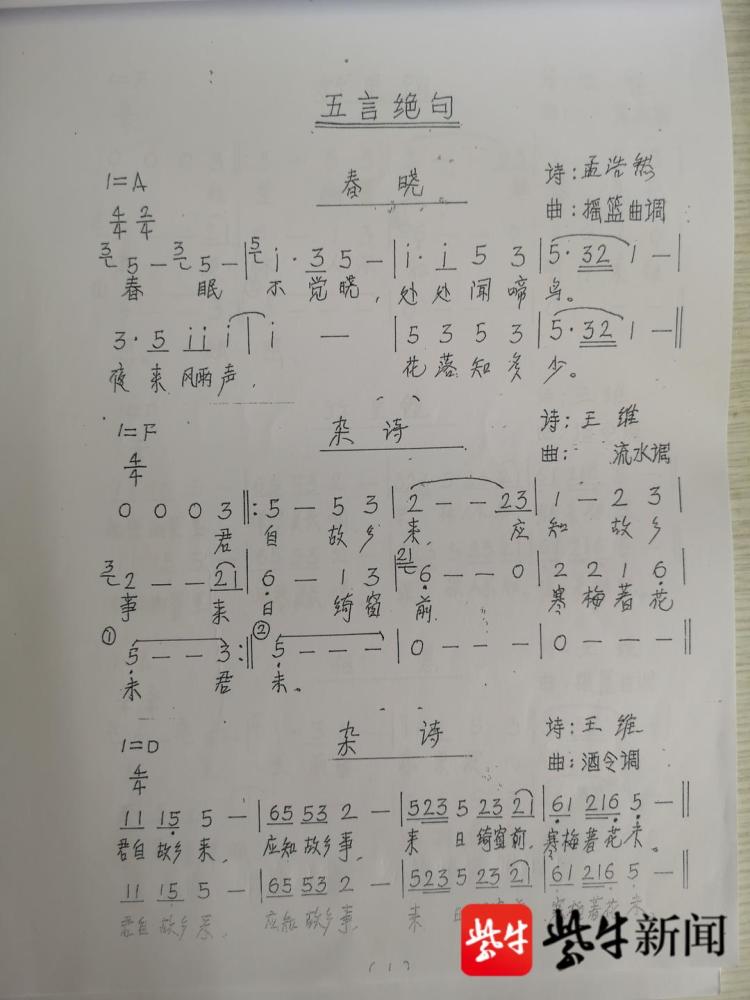 五言绝句
1=A 春晓 诗:孟浩然
4/4 2/4 曲:摇篮曲调
3 5 — 3 5 — | 5 i · 3 5 — | i · i 5 3 | 5 · 32 1 — |
春 眠 不觉晓，处处闻啼鸟。
3 · 5 ii i | i — | 5 3 5 3 | 5 · 32 1 — ‖
夜来风雨声，花落知多少。
1=F 杂诗 诗:王维
4/4 曲: 流水调
0 0 0 3 ‖: 5 — 5 3 | 2 — — 23 | 1 — 2 3 |
君 自 故乡 来， 应 知 故乡
3 2 — — 21 | 6 — 1 3 | 21 6 — — 0 | 2 2 1 6 |
事 来 日 绮窗 前 寒梅著花
① 5 — — 3 :‖ ② 5 — — — | 0 — — — | 0 — — — ‖
未 君 未。
1=D 杂诗 诗:王维
4/4 曲:酒令调
11 15 5 — | 65 53 2 — | 523 5 23 2 | 61 216 5 — ‖
君自故乡来， 应知故乡事， 来 日绮窗前，寒梅著花未。
11 15 5 — | 65 53 2 — | 523 5 23 2) | 61 216 5 — ‖
君自故乡来， 应知故乡事， 来 日 寒梅著花未
(1)
紫牛 紫牛新闻